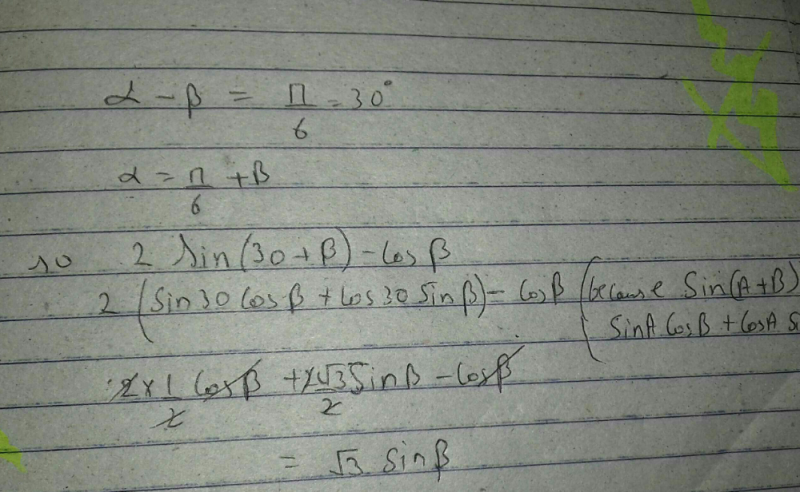 α - β = π/6 = 30°
α = π/6 + β
so 2 Sin(30+β) - Cos β
2 (Sin30 Cosβ + Cos30 Sinβ) - Cosβ (because Sin(A+B)
SinA CosB + CosA Si
2×1/2 Cosβ + 2√3/2 Sinβ - Cosβ
= √3 Sinβ